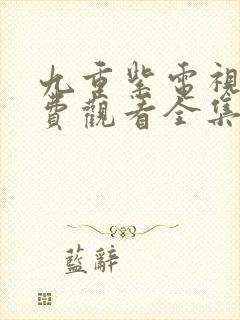 九重紫電視
費觀看全集
藍辭